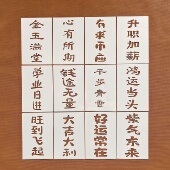 金玉满堂
心有所期
有求必应
升职加薪
学业日进
钱途无量
平步青云
鸿运当头
旺到飞起
大吉大利
好运常在
紫气东来